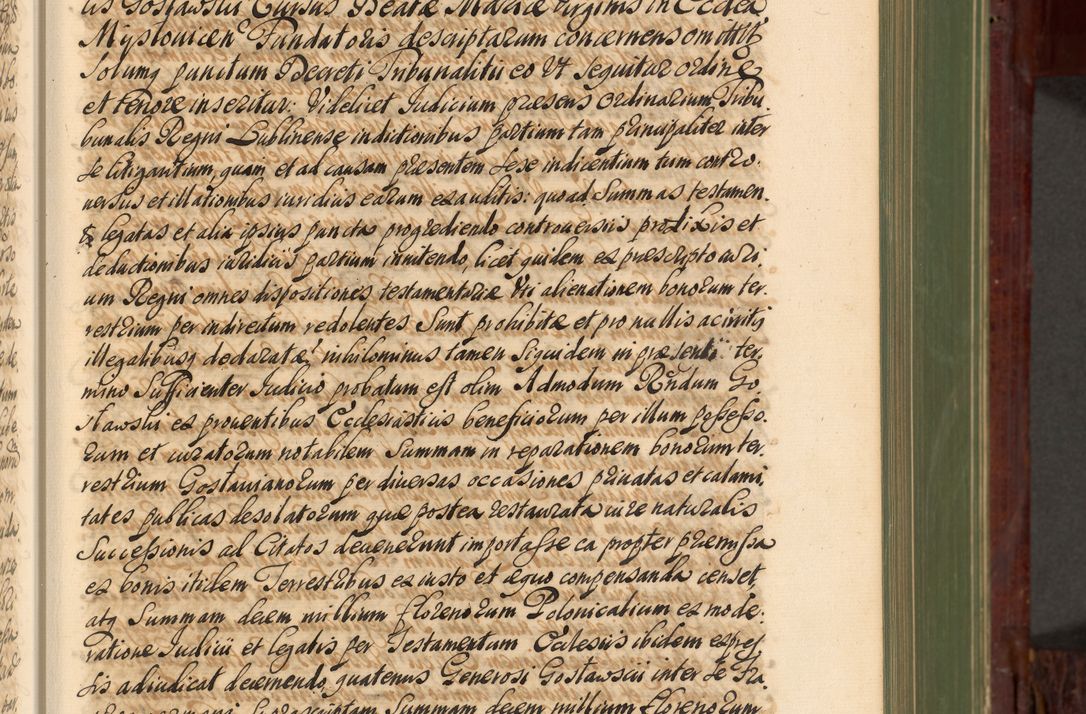 lis Gostawskii Cursus Beatæ Mariæ Virginis in Ecclea
Mysłovicen Fundatoris descriptarum concernens omittit
Solumq punctum Decreti Tribunalitii eo Vt sequitur ordine
et tenore inseritur: Videlicet Judicium præsens Ordinarium Tribu
bunalis Regni Lublinense in dictionibus partium tam principaliter inter
se litigantium, quam et ad causam præsentem sese indicentium tum contro-
versiis et illationibus iuridicis earum exauditis: quoad summas testamen-
legatas et alia ipsius puncta progrediendo controversiis prolixis et
deductionibus iuridicis partium innitendo, licet quidem ex præscripto iuri
um Regni omnes dispositiones testamentariæ Vti alienationem bonorum ter-
restrium per indirectum redolentes Sunt prohibitæ et pro nullis ac irritis
illegalibusq declaratæ nihilominus tamen Siquidem in præsenti ter-
mino Sufficienter Judicio probatum est olim Admodum Rndum Go-
stawski ex proventibus Ecclesiasticis beneficiorum per illum possesso-
rum et curatorum notabilem Summam in reparationem bonorum ter-
restrium Gostavianorum per diversas occasiones privatas et calami-
tates publicas desolatorum quæ postea restaurata iure naturalis
Successionis ad Citatos devenerunt importasse ea propter præmissa
ex bonis itidem Terrestribus ex iusto et æquo compensanda censet
atq Summam decem millium florenorum Polonicalium ex mode-
ratione Judicii et legatis per Testamentum Ecclesiis ibidem expres-
sis adiudicat decernendo, quatenus Generosi Gostawscii inter se Fra-
Summam decem millium florenorum